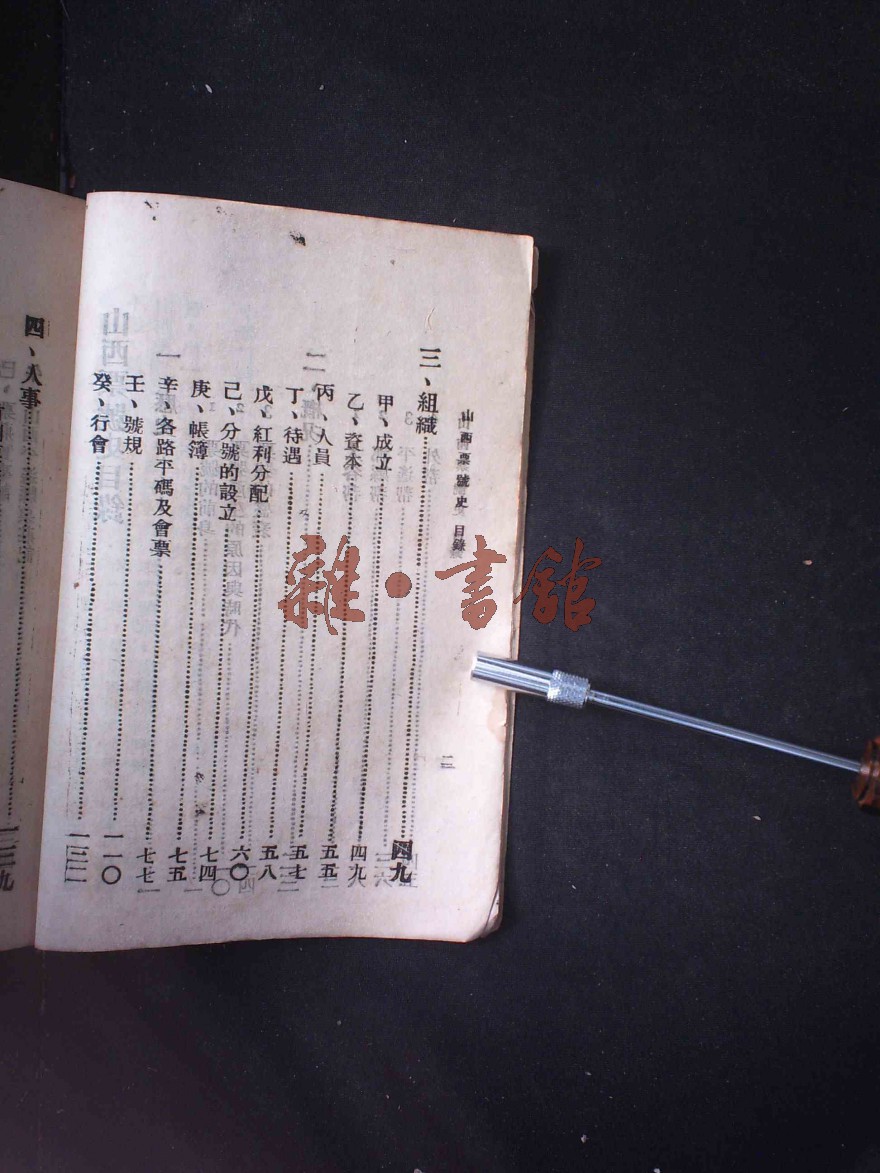 山西票號史 目錄 二
三、組織……四九
甲、成立……四九
乙、資本……五五
丙、人員……五七
丁、待遇……五八
戊、紅利分配……六〇
己、分號的設立……七四
庚、帳簿……七五
辛、各路平碼及會票……七七
壬、號規……一一〇
癸、行會……一三二
四、人事
雜·書館